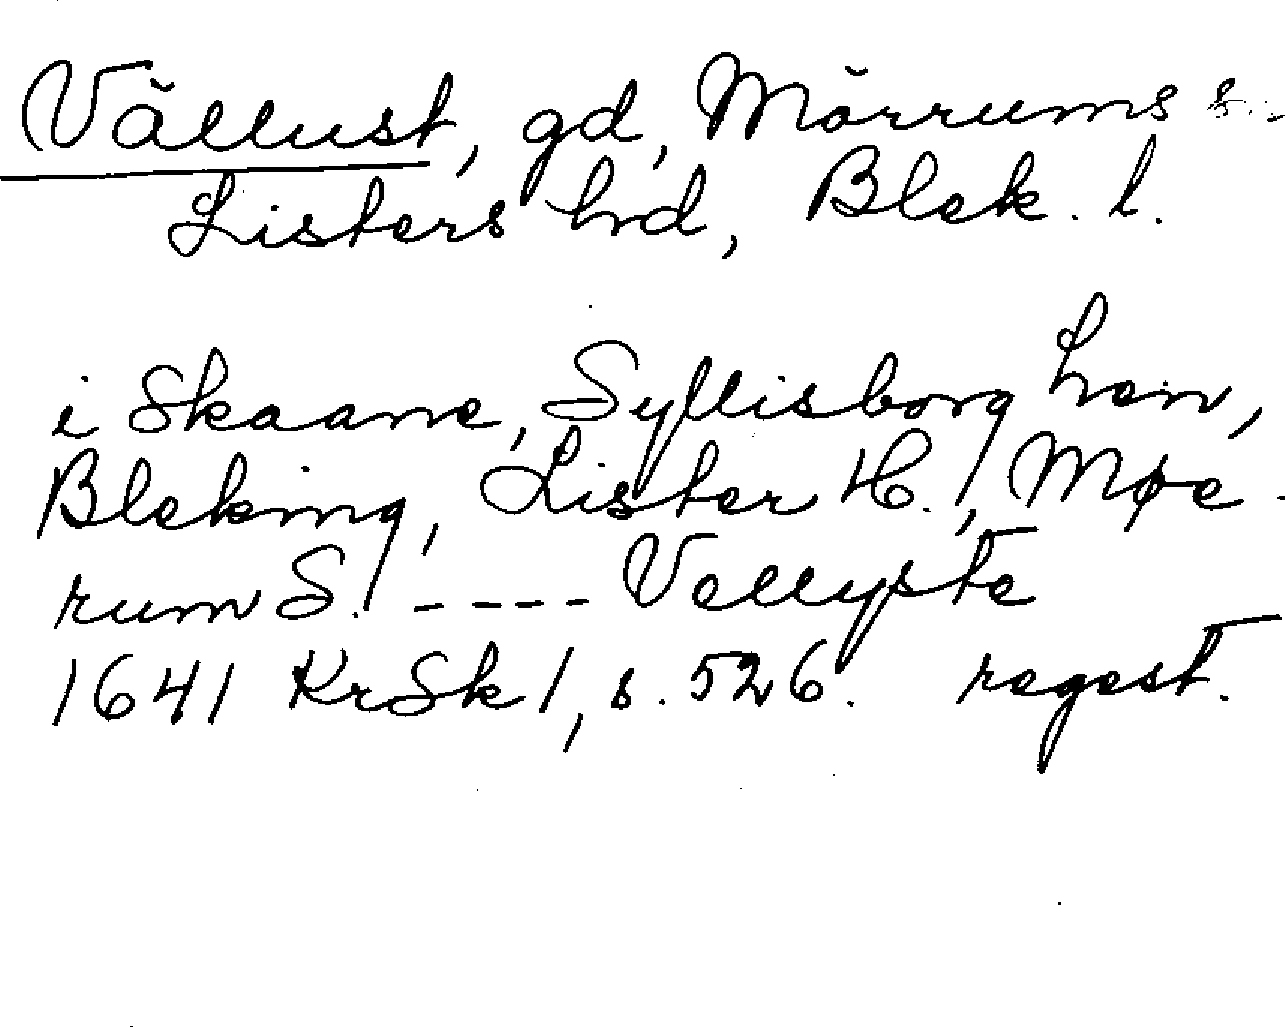 Vällust, gd, Mörrums s.
Listers hd, Blek. l.
i Skaane, Syllisborg Len,
Bleking, Lister H., Møe-
rum S. ---- Vellyste
1641 KrSk 1, s. 526. regest.